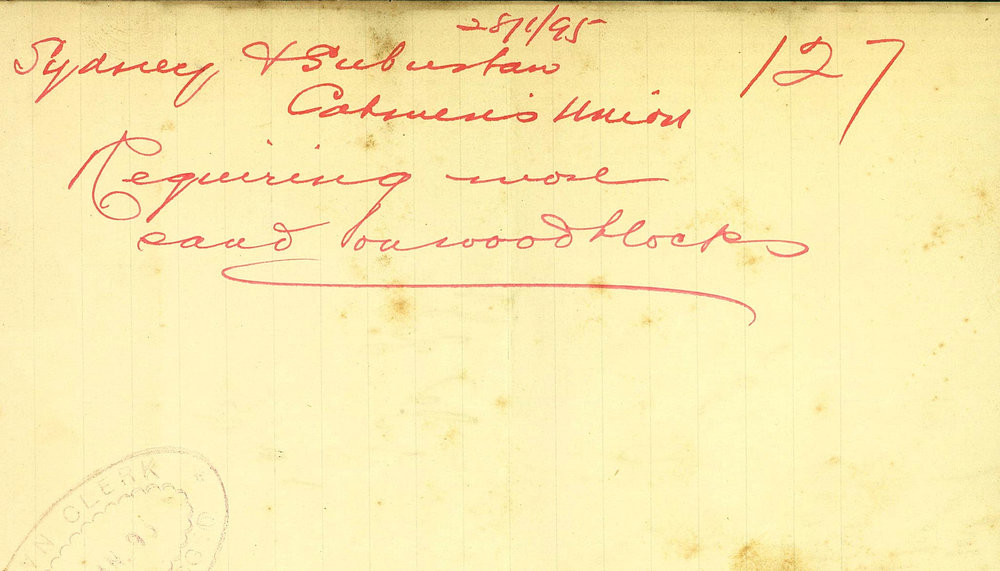 28/1/95
Sydney & Suburban 127
Cabmen's Union
Requiring more
sand on woodblocks
WN CLERK